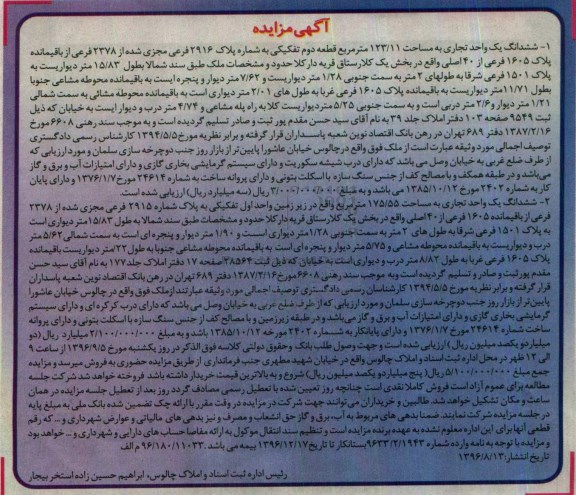 آگهی مزایده
۱- ششدانگ یک واحد تجاری به مساحت ۱۲۳/۱۱ مترمربع قطعه دوم تفکیکی به شماره پلاک ۲۹۱۶ فرعی مجزی شده از ۲۳۷۸ فرعی از باقیمانده
پلاک ۱۶۰۵ فرعی از ۴۰ اصلی واقع در بخش یک کلارستاق قریه دارکلا حدود و مشخصات ملک طبق سند شمالا بطول ۱۵/۸۳ متر دیواریست به
پلاک ۱۵۰۱ فرعی شرقا به طولهای ۲ متر به سمت جنوبی ۱/۲۸ متر دیواریست و ۷/۶۲ متر دیوار و پنجره ایست به باقیمانده محوطه مشاعی جنوبا
بطول ۱۱/۷۱ متر دیواریست به باقیمانده پلاک ۱۶۰۵ فرعی غربا به طول های ۲/۰۱ متر دیواری است به باقیمانده محوطه مشاعی به سمت شمالی
۱/۲۱ متر دیوار و ۲/۶ متر دربی است و به سمت جنوبی ۵/۲۵ متر دیواریست کلا به راه پله مشاعی و ۴/۷۴ متر درب و دیوار ایست به خیابان که ذیل
ثبت ۹۵۴۹ صفحه ۱۰۳ دفتر املاک جلد ۳۹ به نام آقای سید حسن مقدم پور ثبت و صادر و تسلیم گردیده است و به موجب سند رهنی ۶۶۰۸ مورخ
۱۳۸۷/۲/۱۶ دفتر ۶۸۹ تهران در رهن بانک اقتصاد نوین شعبه پاسداران قرار گرفته و برابر نظریه مورخ ۱۳۹۴/۵/۵ کارشناس رسمی دادگستری
توصیف اجمالی مورد وثیقه عبارت است از ملک فوق واقع در چالوس خیابان عاشورا پایین تر از بازار روز جنب دوچرخه سازی سلمان و مورد ارزیابی که
از طرف ضلع غربی به خیابان وصل می باشد که دارای درب شیشه سکوریت و دارای سیستم گرمایشی بخاری گازی و دارای امتیازات آب و برق و گاز
می باشد و در طبقه همکف و با مصالح کف از جنس سنگ سازه با اسکلت بتونی و دارای پروانه ساخت به شماره ۲۴۶۱۴ مورخ ۱۳۷۶/۱/۷ و دارای پایان
کار به شماره ۲۴۰۲ مورخ ۱۳۸۵/۱۰/۱۲ می باشد و به مبلغ ۳/۰۰۰/۰۰۰/۰۰۰ ریال (سه میلیارد ریال) ارزیابی شده است.
۲- ششدانگ یک واحد تجاری به مساحت ۱۷۵/۵۵ مترمربع واقع در زیر زمین واحد اول تفکیکی به پلاک شماره ۲۹۱۵ فرعی مجزی شده از ۲۳۷۸
فرعی از باقیمانده ۱۶۰۵ فرعی از ۴۰ اصلی واقع در بخش یک کلارستاق قریه دارکلا حدود و مشخصات طبق سند شمالا به طول ۱۵/۸۳ متر دیواری است
به پلاک ۱۵۰۱ فرعی شرقا به طول های ۲ متر به سمت جنوبی ۱/۲۸ متر دیواری است و ۱/۹۰ متر دیوار و پنجره ای است به سمت شمالی ۵/۶۲ متر
درب و دیواریست به باقیمانده محوطه مشاعی و ۵/۷۵ متر دیواری و پنجره ای است به باقیمانده محوطه مشاعی جنوبا به طول ۲۲/ متر دیواریست باقیمانده
پلاک ۱۶۰۵ فرعی غربا به طول ۸/۸۲ متر درب و دیواری است به خیابان که ذیل ثبت ۲۸۵۶۴ صفحه ۱۷ دفتر املاک جلد ۱۷۷ به نام آقای سید حسن
مقدم پور ثبت و صادر و تسلیم گردیده است و به موجب سند رهنی ۶۶۰۸ مورخ ۱۳۸۷/۲/۱۶ دفتر ۶۸۹ تهران در رهن بانک اقتصاد نوین شعبه پاسداران
قرار گرفته و برابر نظریه مورخ ۱۳۹۴/۵/۵ کارشناس رسمی دادگستری توصیف اجمالی مورد وثیقه عبارتند از ملک فوق واقع در چالوس خیابان عاشورا
پایین تر از بازار روز جنب دوچرخه سازی سلمان و مورد ارزیابی که از طرف ضلع غربی به خیابان وصل می باشد که دارای درب کرکره ای و دارای سیستم
گرمایشی بخاری گازی و دارای امتیازات آب و برق و گاز می باشد و در طبقه زیرزمین و با مصالح کف از جنس سنگ سازه با اسکلت بتونی و دارای پروانه
ساخت شماره ۲۴۶۱۴ مورخ ۱۳۷۶/۱/۷ و دارای پایانکار به شماره ۲۴۰۲ مورخه ۱۳۸۵/۱۰/۱۲ می باشد و به مبلغ ۲/۱۰۰/۰۰۰/۰۰۰ میلیارد ریال (دو
میلیارد و یکصد میلیون ریال) ارزیابی شده است و جهت وصول طلب بانک و حقوق دولتی کلاسه فوق الذکر در روز یکشنبه مورخ ۱۳۹۶/۹/۵ از ساعت ۹
الی ۱۲ ظهر در محل اداره ثبت اسناد و املاک چالوس واقع در خیابان شهید مطهری جنب فرمانداری از طریق مزایده حضوری به فروش میرسد و مزایده
جمع مبلغ ۵/۱۰۰/۰۰۰/۰۰۰ ریال (پنج میلیارد و یکصد میلیون ریال) شروع و به بالاترین قیمت خریدار داشته باشد فروخته خواهد شد شرکت جلسه
مطالعه برای عموم آزاد است فروش کاملا نقدی است چنانچه روز تعیین شده با تعطیل رسمی مصادف گردد روز بعد از تعطیل جلسه مزایده در همان
ساعت و مکان تشکیل خواهد شد. طالبین و خریداران می توانند جهت شرکت در مزایده در وقت مقرر با ارائه چک تضمین شده بانک ملی به مبلغ پایه
در جلسه مزایده شرکت نمایند. ضمنا بدهی های مربوط به آب، برق و گاز حق انشعاب و مصرف و نیز بدهی های مالیاتی و عوارض شهرداری و .. که رقم
قطعی آنها برای این اداره معلوم نشده به عهده برنده مزایده است و تنظیم سند انتقال موکول به ارائه مفاصا حساب های دارایی و شهرداری و .. خواهد بود
و مزایده با توجه به نامه وارده شماره ۹۶۳۳/۲/۱۹۴۳ بستانکار تا تاریخ ۱۳۹۶/۱۲/۱۷ بیمه می باشد. ۹۶/۱۸۰/۱۱۰۳۳ م الف
تاریخ انتشار: ۱۳۹۶/۸/۱۳
رئیس اداره ثبت اسناد و املاک چالوس، ابراهیم حسین زاده استخر بیجار